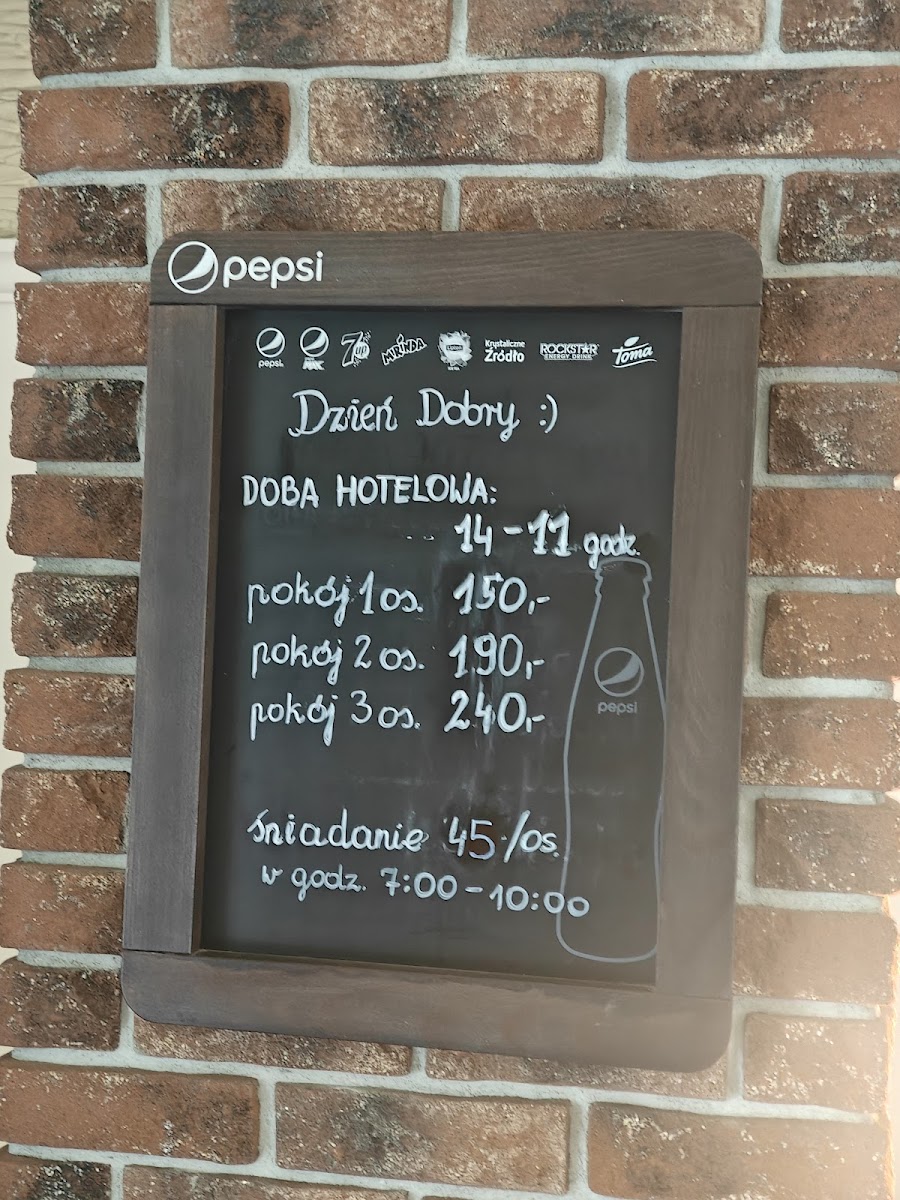 pepsi
pepsi pepsi MAX 7up MIRINDA Lipton ICE TEA Krystaliczne Źródło ROCKSTAR ENERGY DRINK Toma
Dzień Dobry :)
DOBA HOTELOWA:
14-11 godz.
pokój 1 os. 150,-
pokój 2 os. 190,-
pokój 3 os. 240,-
pepsi
śniadanie 45-/os.
w godz. 7:00-10:00